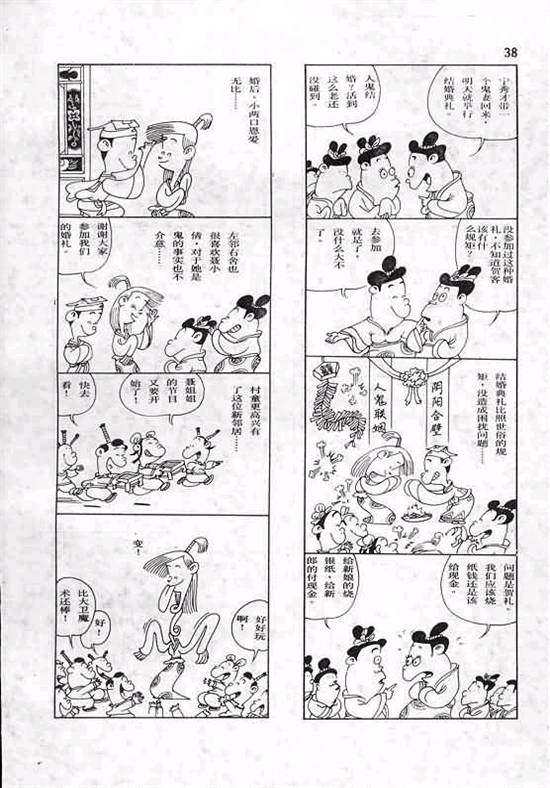 38
宁秀才带一
个鬼妻回来，
明天就举行
结婚典礼。
人鬼结
婚？活到
这么老还
没碰到。
没参加过这种婚
礼，不知道贺客
该有什
么规矩？
去参加
就是了，
没什么大不
了。
结婚典礼比照世俗的规
矩，没造成困扰问题……
阴阳合璧
人鬼联姻
问题是贺礼。
我们应该烧
纸钱还是该
给现金。
给新娘的烧
银纸，给新
郎的付现金。
婚后，小两口恩爱
无比……
左邻右舍也
很喜欢聂小
倩，对于她是
鬼的事实也不
介意。
谢谢大家
参加我们
的婚礼。
村童更高兴有
了这位新邻居……
聂姐姐
的节目
又要开
始了！
快去
看！
变！
好好玩
啊！
好！
比大卫魔
术还棒！